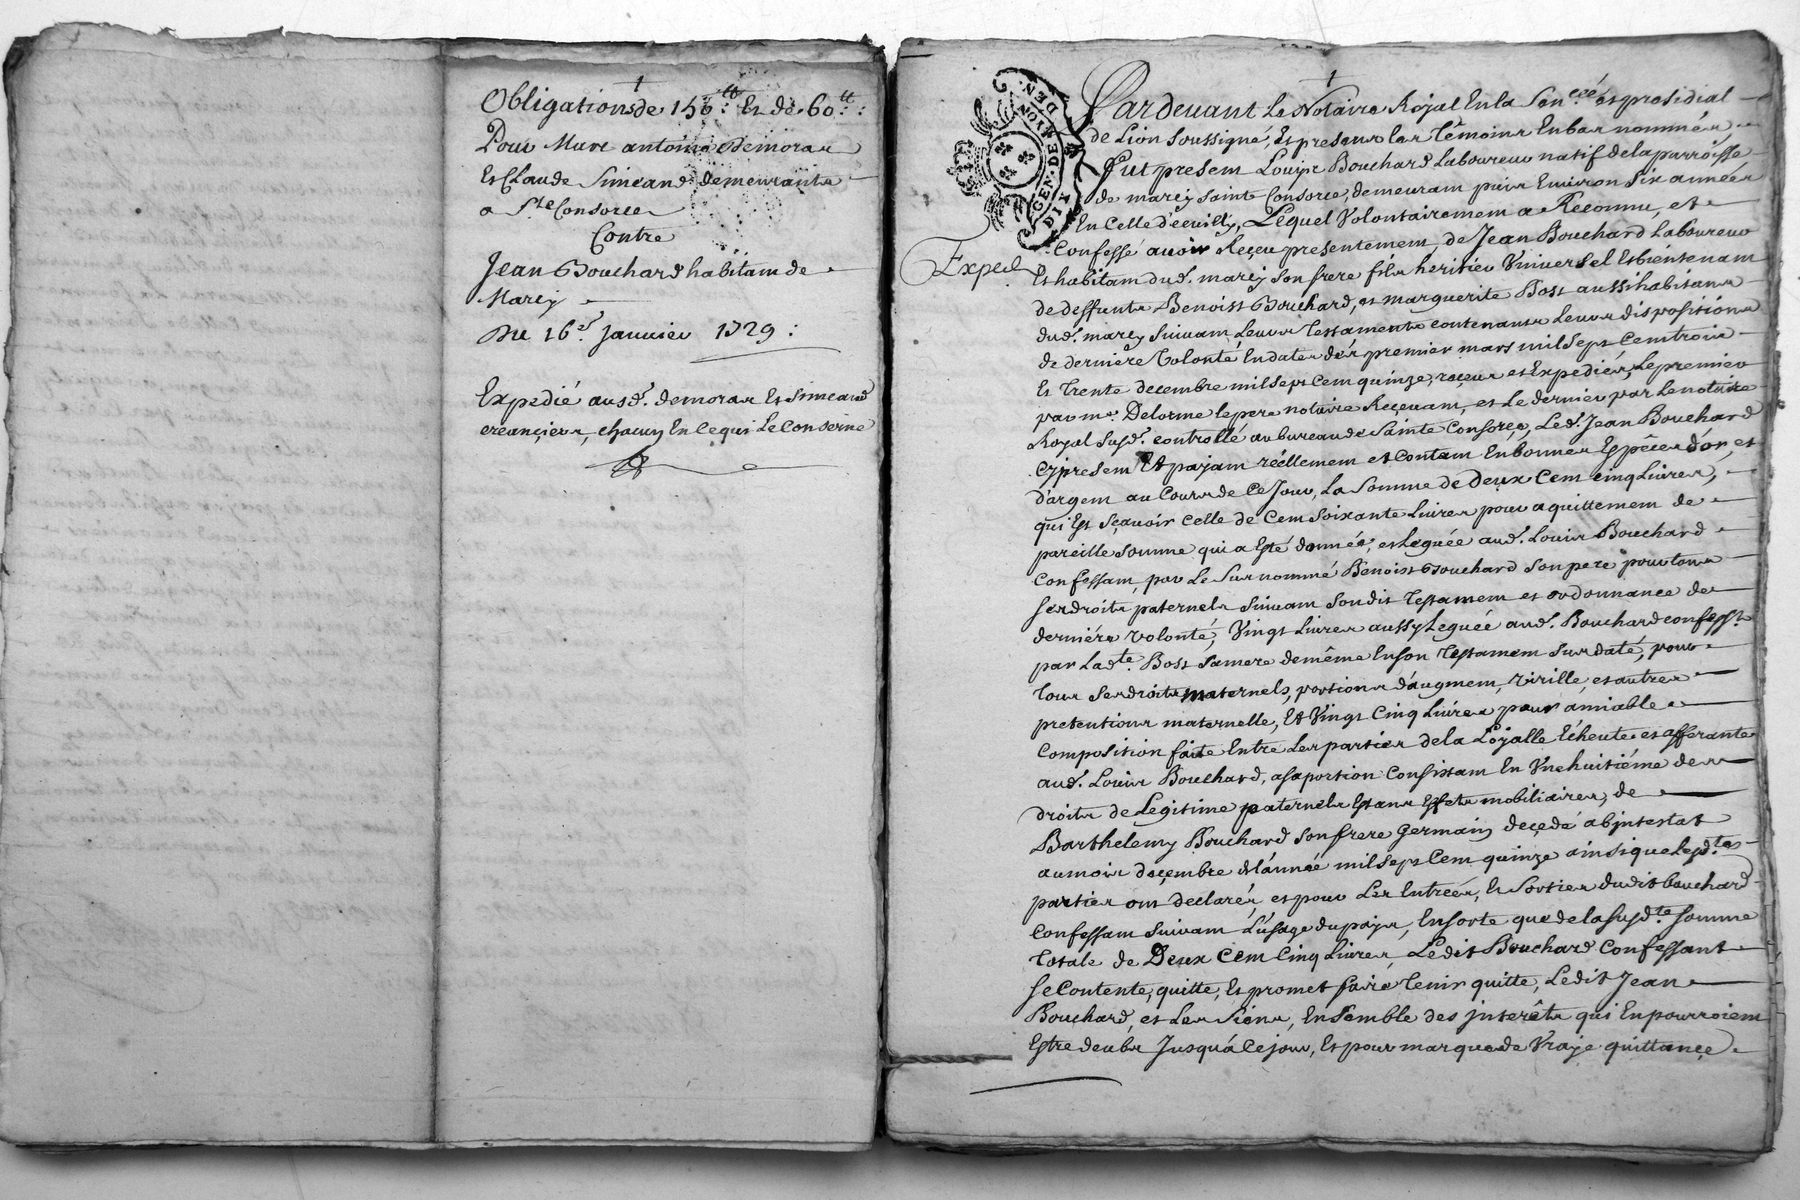 Obligations de 150.tt Et de 60.tt :
Pour Marc antoine Demoras
Et Claude Simeand demeurants
a S.te Consorce
Contre
Jean Bouchard habitam de
Marcy
Du 16.e Janvier 1729 :
Expedié ausd. demoras Et Simeand
creanciers, chacun En ce qui Le Conserne
GEN · DE · LYON
DIX DEN.
Exped.
Pardevant Le Notaire Royal En la Sen.ceé et presidial
de Lion soussigné, Et presens Les Témoins En bas nommés,
Fut presem Louis Bouchard Laboureur natif de la parroisse
de marcy sainte Consorce, demeuram puis Environ six années
En Celle d'ecully, Lequel Volontairemem a Reconnu, et
Confessé avoir Reçeu presentemem, de Jean Bouchard Laboureur
Et habitam dud. marcy son frere fils heritier Universel Et bientenam
de deffunts Benoist Bouchard, et marguerite Bost aussi habitans
dud. marcy suivam Leurs Testaments contenants Leurs dispositions
de dernière Volonté En dates des premier mars mil sept Cem trois
Et Trente decembre mil sept Cem quinze, reçeus et Expediés, Le premier
par me. Delorme le pere notaire Reçevam, et Le dernier par Le notaire
Royal susd. controllé au bureau de Sainte Consorce, Led. Jean Bouchard
cy presem Et pajam réellemem et Contam En bonnes Espèces d'or, et
d'argem au Cours de Ce Jour, La Somme de Deux Cem cinq Livres,
qui Est Sçavoir Celle de Cem Soixante Livres pour aquittemem de
pareille Somme qui a Esté donnée, et Leguée aud. Louis Bouchard
Confessam, par Le Surnommé Benoist Bouchard Son pere pour tous
ses droits paternels Suivam Son dit Testamem et ordonnance de
dernière volonté, Vingt Livres aussy Leguée aud. Bouchard confess.t
par Lad.te Bost Sa mere de même En son Testamem Surdaté, pour
Tous Ses droits maternels, portions d'augmem, Virille, et autres
pretentions maternelle, Et Vingt Cinq Livres pour amiable
Composition faite Entre Les parties de la Lojalle Echeute et afferante
aud. Louis Bouchard, a sa portion Consistam En Une huitième des
droits de Legitime paternels Et ans Effets mobiliaires, de
Barthelemy Bouchard Son frere Germain deçedé abjntestat
au mois deçembre de L'année mil Sept Cem quinze ainsi que Lesd.tes
parties ont declarés, et pour Les Entrées, Et Sorties dudit bouchard
Confessam Suivam L'usage du pajs, En sorte que de la Susd.te Somme
Totale de Deux Cem Cinq Livres, Ledit Bouchard Confessant
se Contente, quitte, Et promet faire Tenir quitte, Ledit Jean
Bouchard, et Les Siens, Ensemble des jnterêts qui En pourroiem
Estre deubs Jusqu'à Ce jour, Et pour marque de Vraje quittance